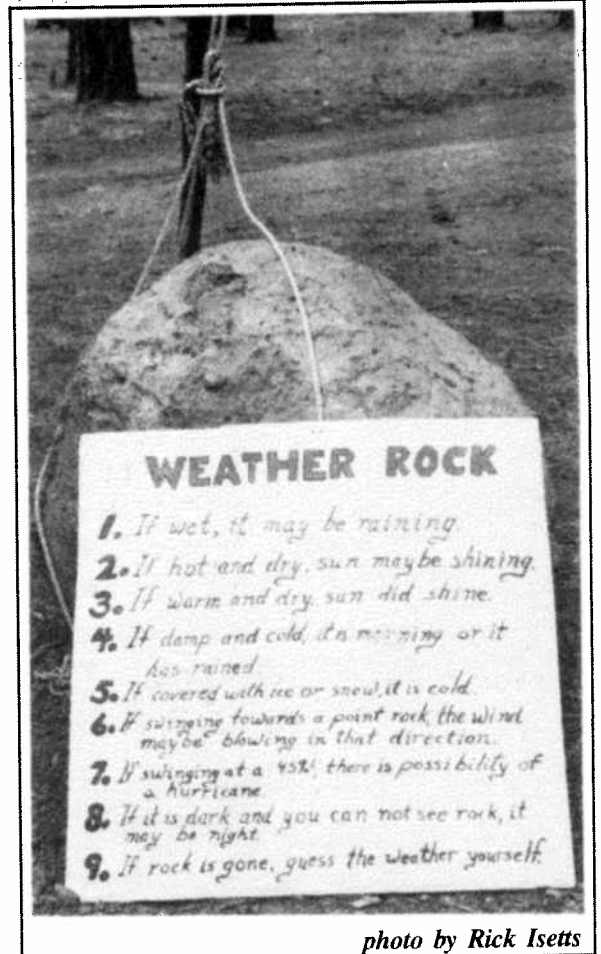 WEATHER ROCK
1. If wet, it may be raining.
2. If hot and dry, sun maybe shining.
3. If warm and dry, sun did shine.
4. If damp and cold, it's morning or it
has rained
5. If covered with ice or snow, it is cold.
6. If swinging towards a point rock, the wind
maybe blowing in that direction.
7. If swinging at a there is possibility of
a hurricane
8. If it is dark and you can not see rock, it
may be night.
9. If rock is gone, guess the weather yourself.
photo by Rick Isetts